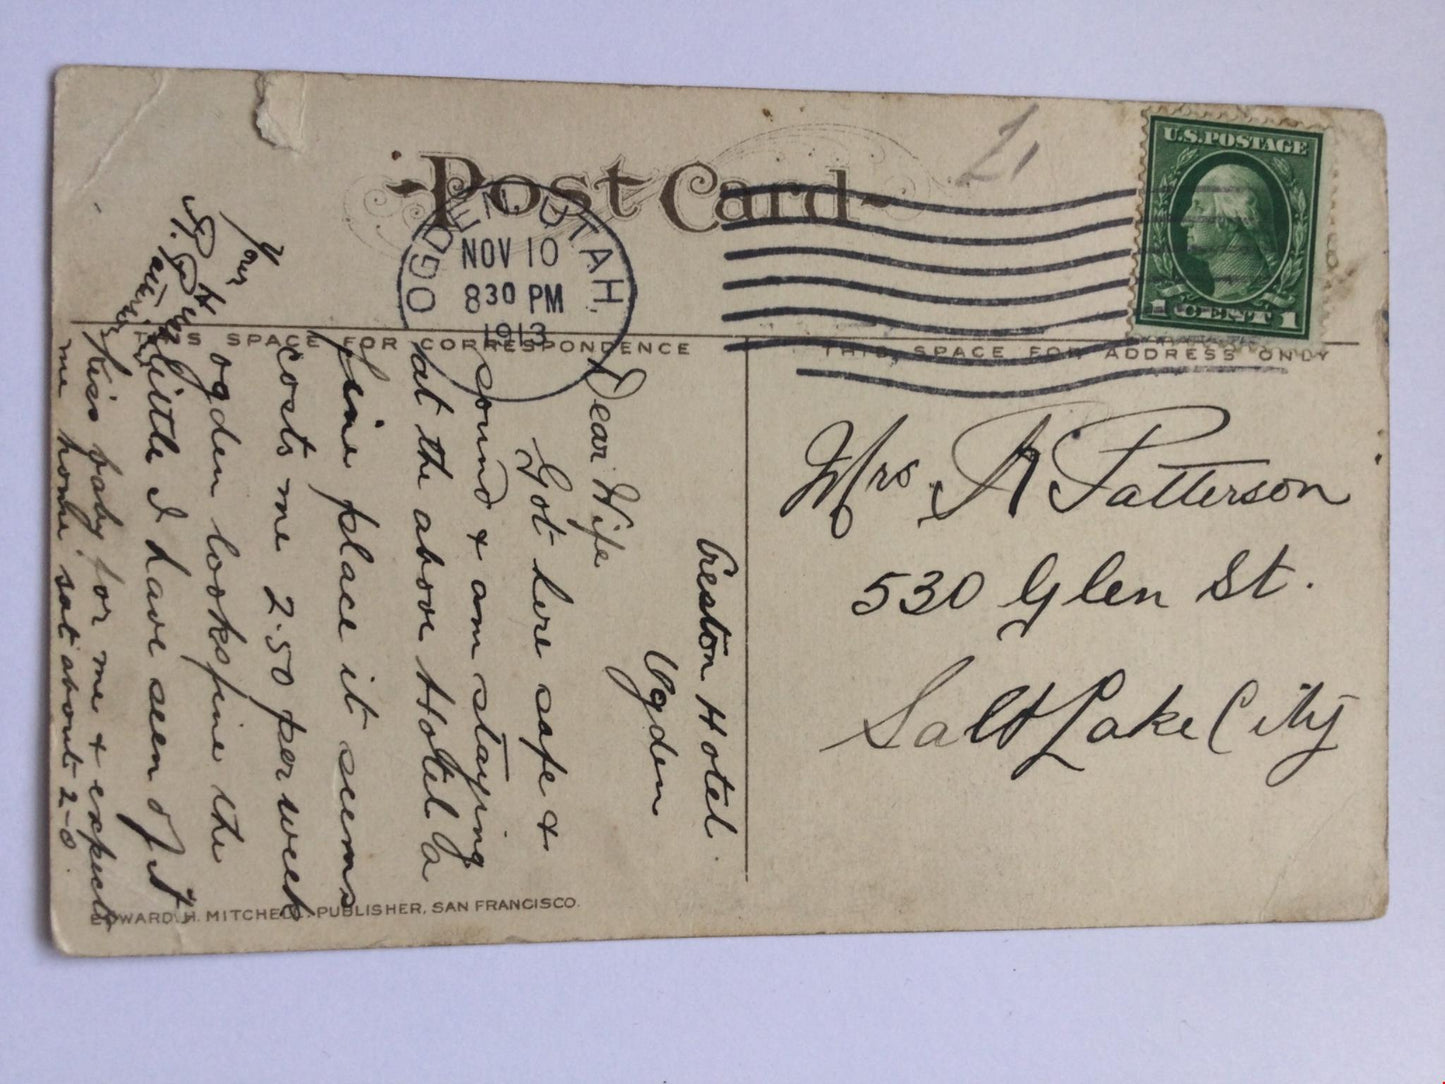 Post Card
OGDEN, UTAH.
NOV 10
8 30 PM
1913
U.S. POSTAGE
1 CENT 1
THIS SPACE FOR CORRESPONDENCE
THIS SPACE FOR ADDRESS ONLY
Mrs. A Patterson
530 Glen St.
Salt Lake City
Creston Hotel
Ogden
Dear Wife
Got here safe &
sound & am staying
at the above Hotel a
fine place it seems
costs me 2.50 per week
ogden looks fine the
little I have seen of it
Kiss baby for me & expect
me home sat about 2-0
Your
Hub
EDWARD H. MITCHELL, PUBLISHER, SAN FRANCISCO.